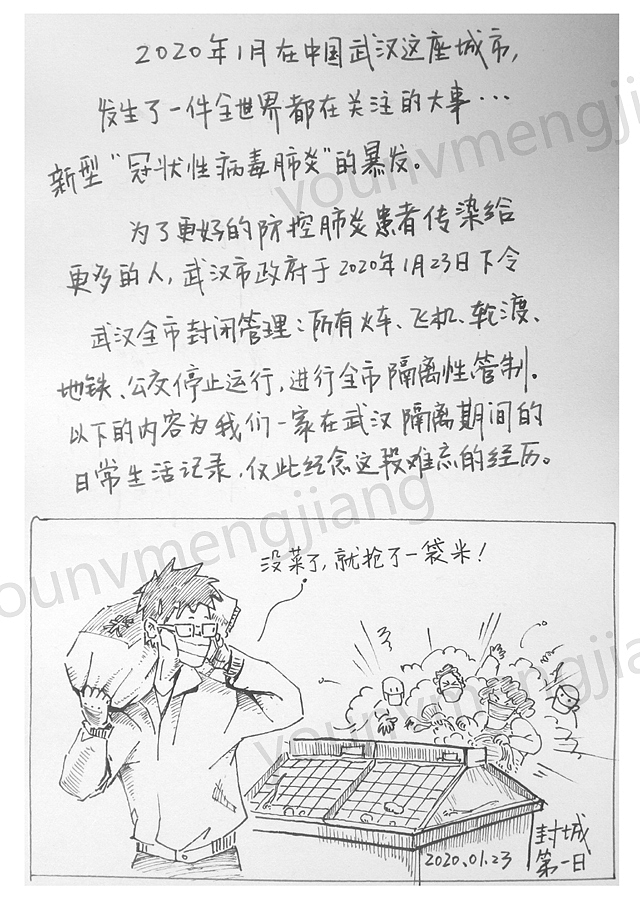 2020年1月在中国武汉这座城市,
发生了一件全世界都在关注的大事...
新型"冠状性病毒肺炎"的暴发。
为了更好的防控肺炎患者传染给
更多的人,武汉市政府于2020年1月23日下令
武汉全市封闭管理:所有火车、飞机、轮渡、
地铁、公交停止运行,进行全市隔离性管制。
以下的内容为我们一家在武汉隔离期间的
日常生活记录,仅此纪念这段难忘的经历。
没菜了,就抢了一袋米!
2020.01.23
封城
第一日
younvmengjiang
younvmengjiang
younvmengjiang